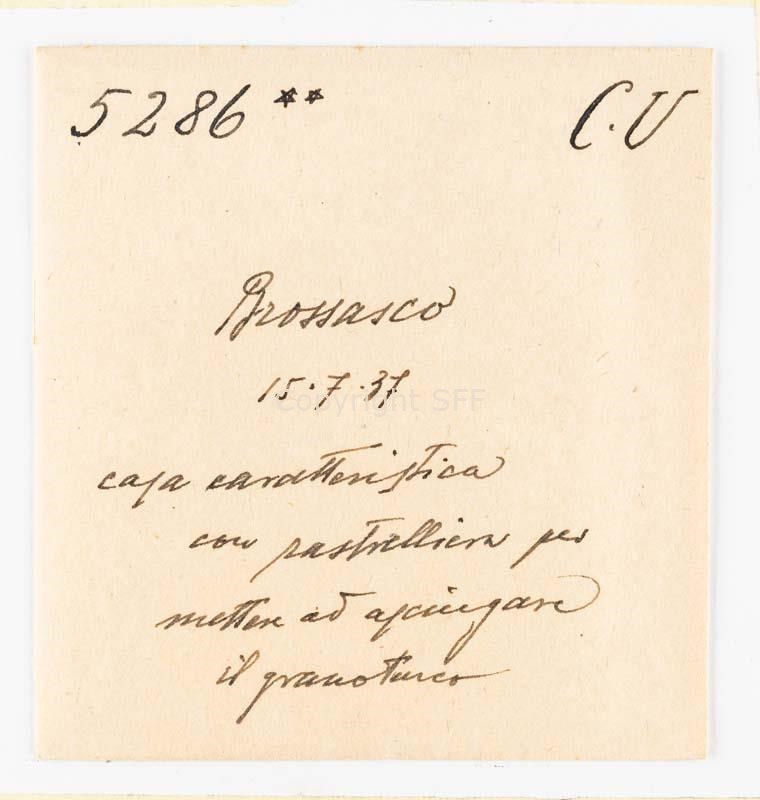 5286 ** C.V
Brossasco
15.7.37
Copyright SFF
casa caratteristica
con rastrelliera per
mettere ad asciugare
il granoturco